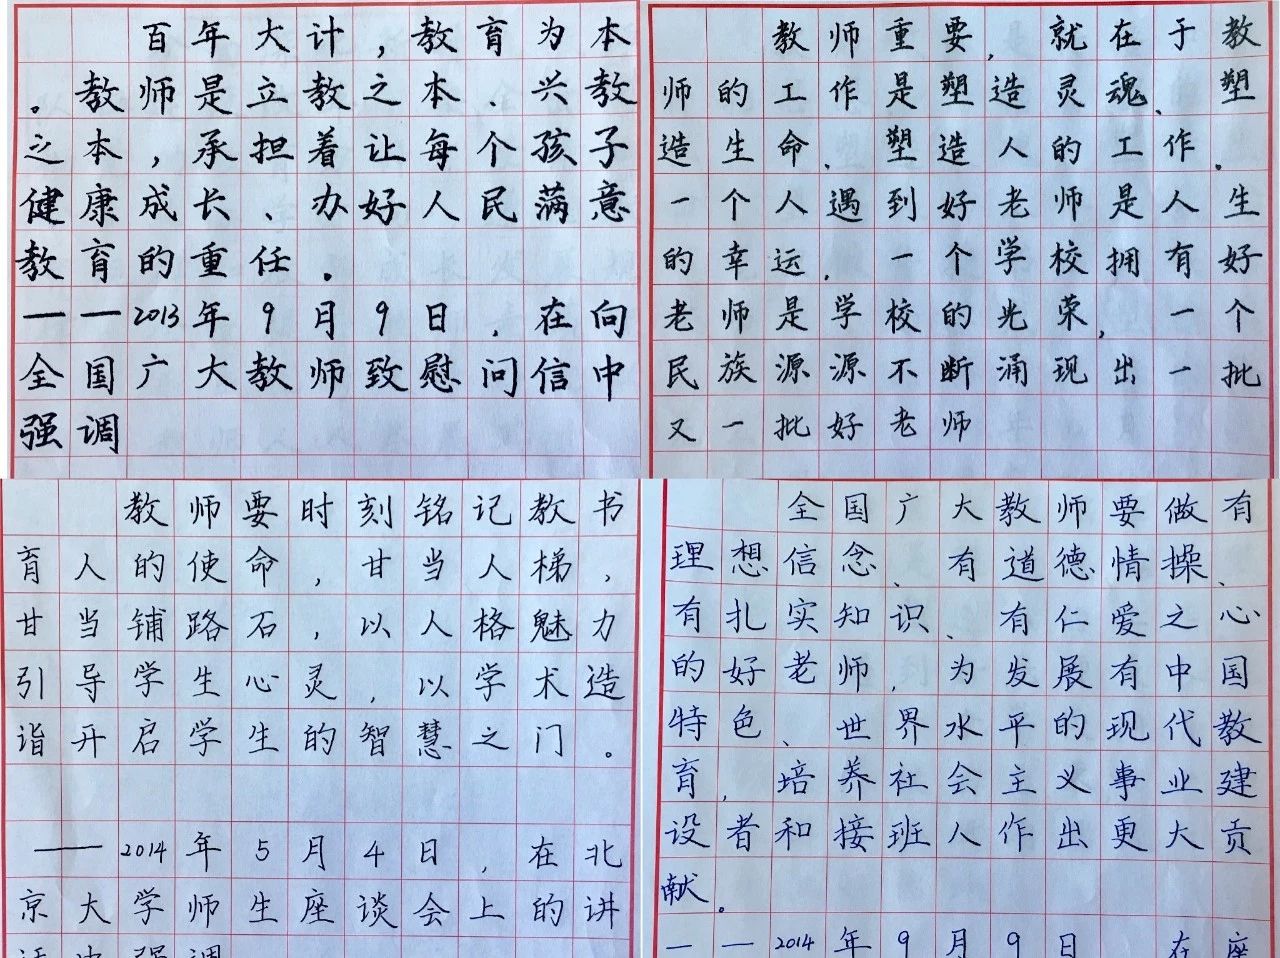 百年大计，教育为本
。教师是立教之本、兴教
之本，承担着让每个孩子
健康成长、办好人民满意
教育的重任。
——2013年9月9日，在向
全国广大教师致慰问信中
强调
教师重要，就在于教
师的工作是塑造灵魂、塑
造生命、塑造人的工作。
一个人遇到好老师是人生
的幸运，一个学校拥有好
老师是学校的光荣，一个
民族源源不断涌现出一批
又一批好老师
教师要时刻铭记教书
育人的使命，甘当人梯，
甘当铺路石，以人格魅力
引导学生心灵，以学术造
诣开启学生的智慧之门。
——2014年5月4日，在北
京大学师生座谈会上的讲
话中强调
全国广大教师要做有
理想信念、有道德情操、
有扎实知识、有仁爱之心
的好老师，为发展有中国
特色、世界水平的现代教
育，培养社会主义事业建
设者和接班人作出更大贡
献。
——2014年9月9日 在座